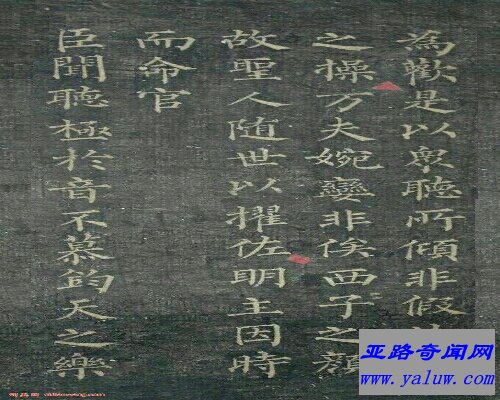 為歡是以衆聽所傾非假
之操万夫婉孌非俟西子之顏
故聖人随世以擢佐明主因時
而命官
臣聞聽極於音不慕鈞天之樂
亚路奇闻网
www.yaluw.com